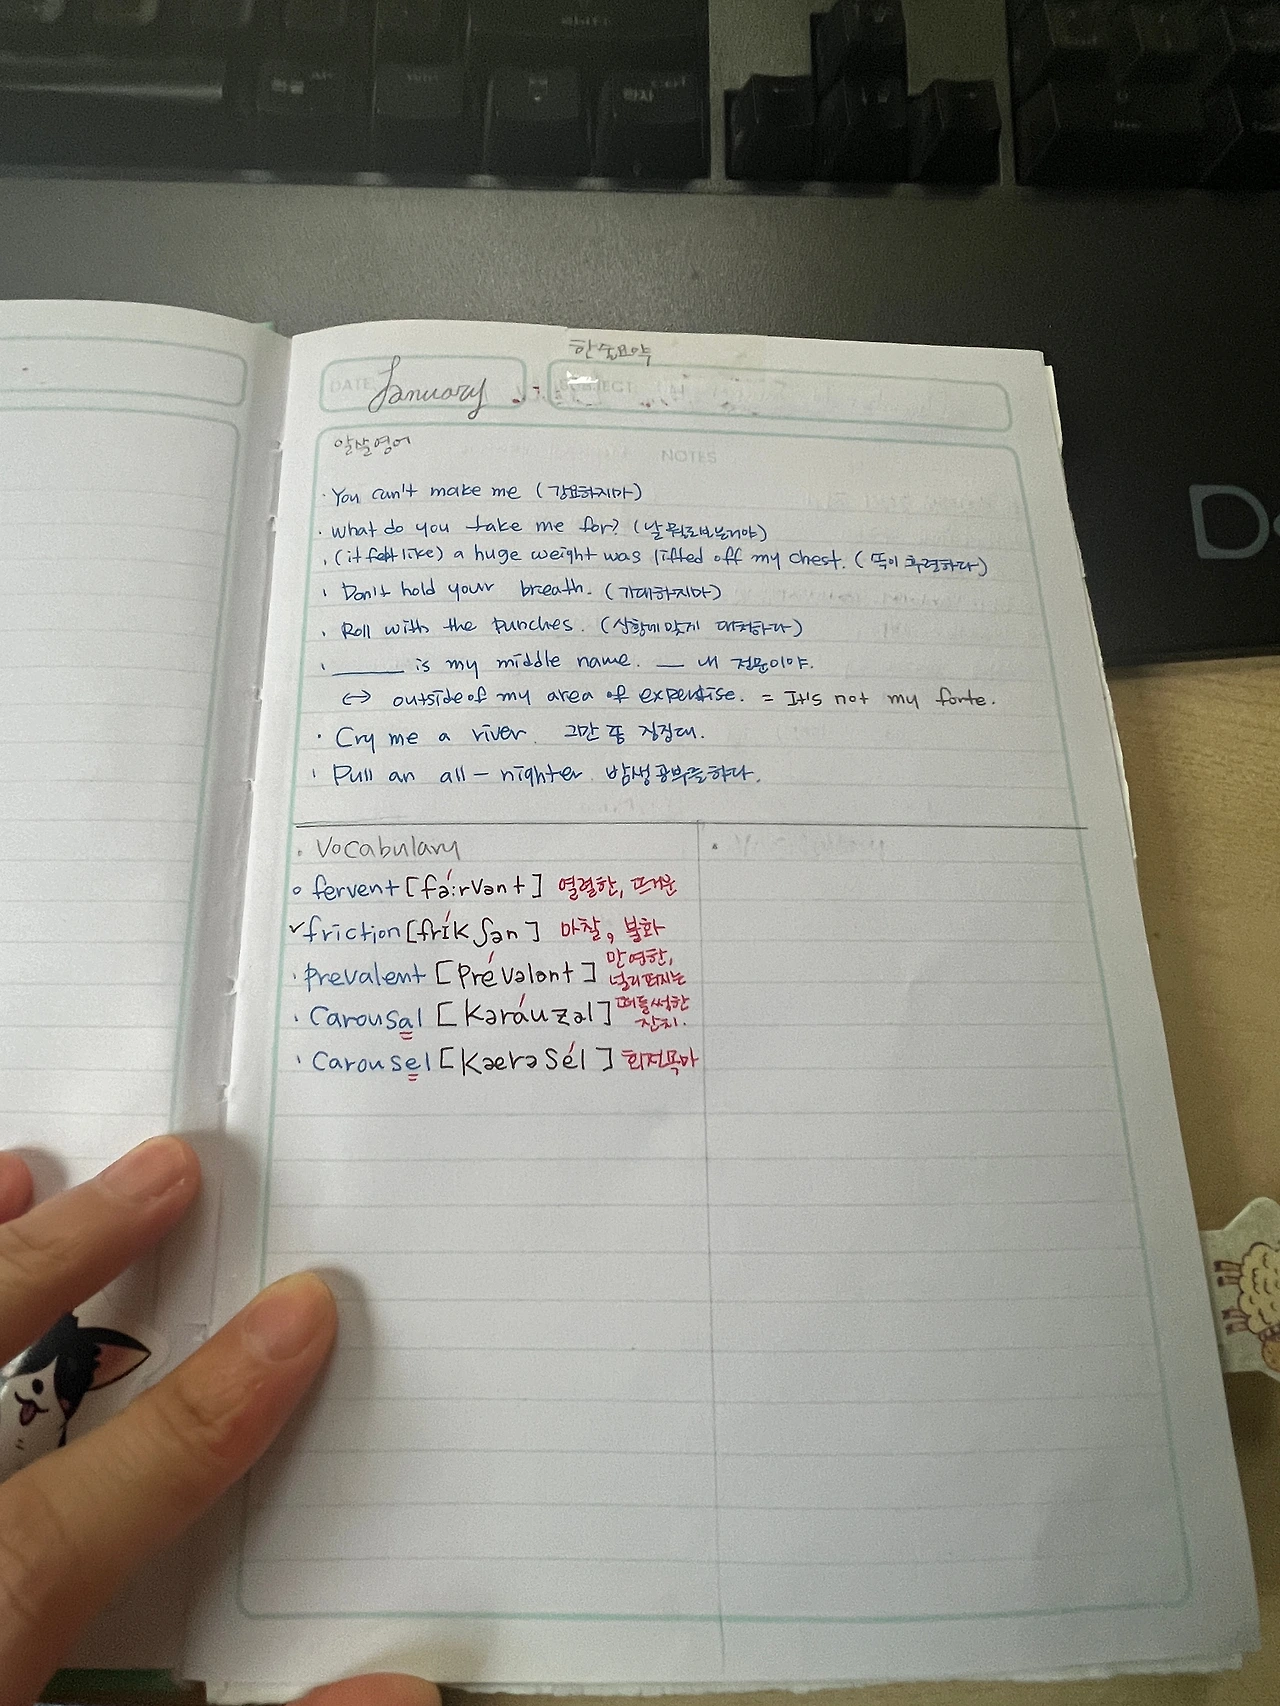 한줄요약
DATE January SUBJECT
알쓸영어
NOTES
· You can't make me (강요하지마)
· What do you take me for? (날 뭘로보는거야)
· (it felt like) a huge weight was lifted off my chest. (뚝이 후련하다)
· Don't hold your breath. (기대하지마)
· Roll with the punches. (상황에 맞게 대처하다)
· ______ is my middle name. __ 내 전문이야.
↔ outside of my area of expertise. = It's not my forte.
· Cry me a river. 그만 좀 징징대.
· Pull an all-nighter. 밤샘공부를하다.
· Vocabulary
o fervent [fə́ːrvənt] 열렬한, 뜨거운
✓ friction [fríkʃən] 마찰, 불화
· prevalent [prévələnt] 만연한,
널리퍼지는
· Carousal [kəráuzəl] 떠들썩한
잔치.
· Carousel [kaerəsél] 회전목마